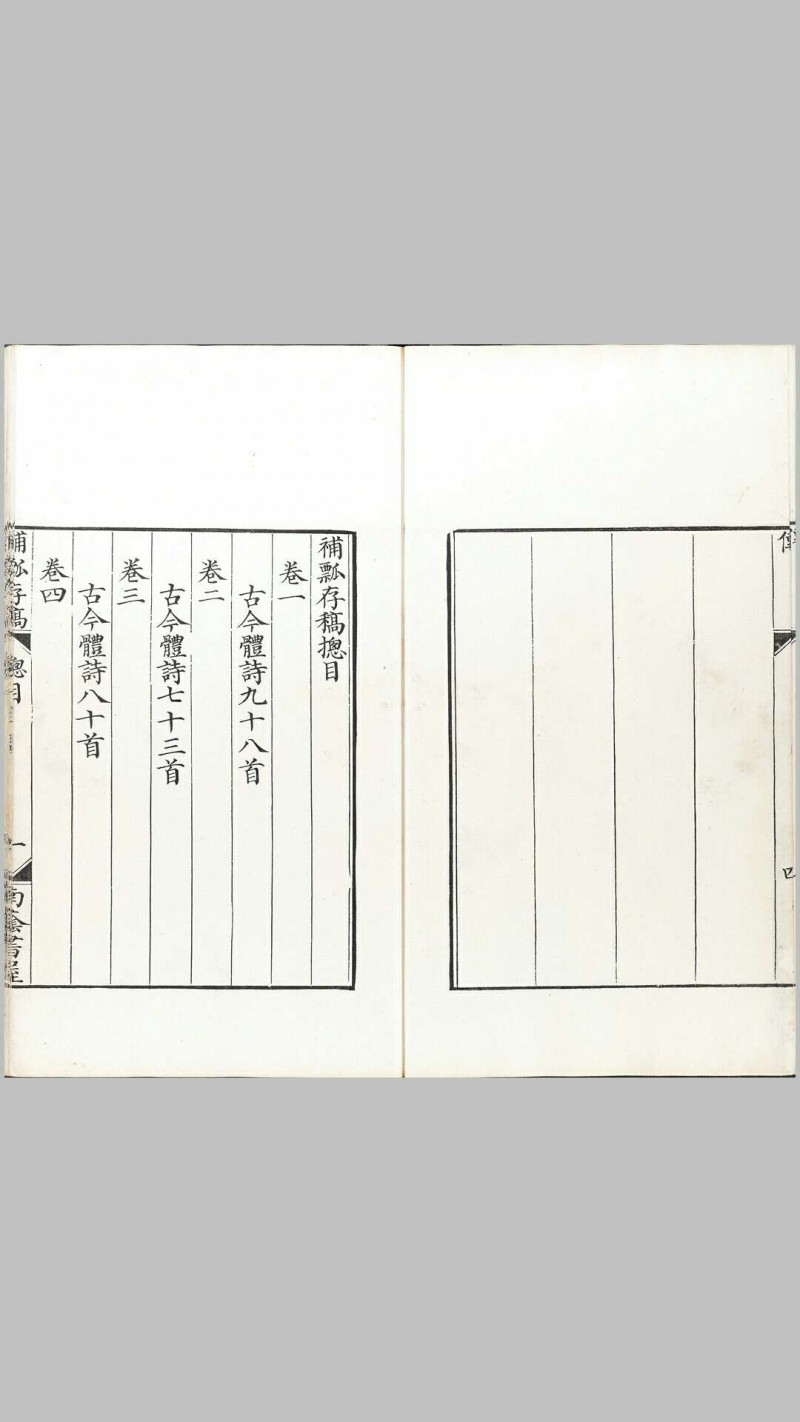 傳
四
補瓢存稿摠目
卷一
古今體詩九十八首
卷二
古今體詩七十三首
卷三
古今體詩八十首
卷四
補瓢存稿
總目
一
南蔭書屋